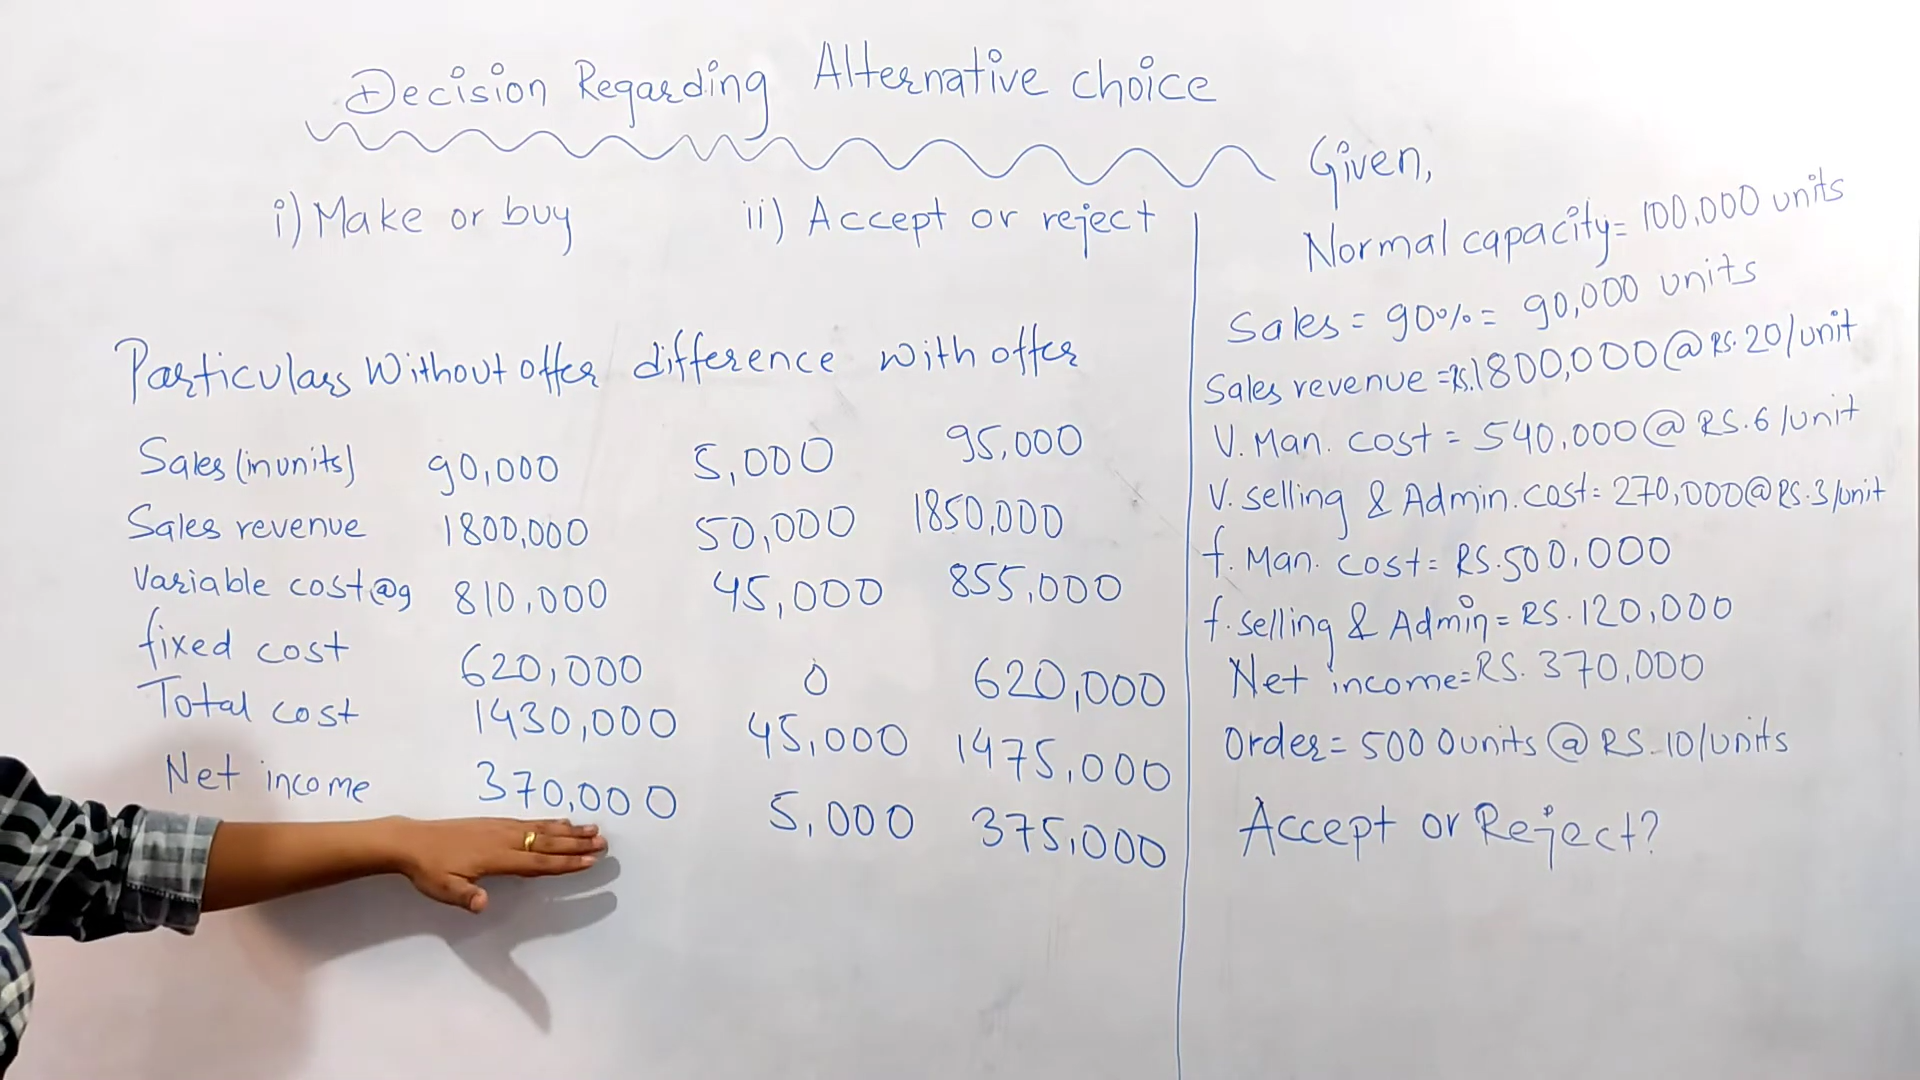 Decision Regarding Alternative choice
i) Make or buy
ii) Accept or reject
Particulars Without offer difference with offer
Sales (in units) 90,000 5,000 95,000
Sales revenue 1800,000 50,000 1850,000
Variable cost@9 810,000 45,000 855,000
fixed cost 620,000 0 620,000
Total cost 1430,000 45,000 1475,000
Net income 370,000 5,000 375,000
Given,
Normal capacity= 100,000 units
Sales = 90% = 90,000 units
Sales revenue =Rs.1800,000@ Rs.20/unit
V. Man. cost = 540,000@ RS.6/unit
V. selling & Admin. cost= 270,000@RS.3/unit
f. Man. cost= RS.500,000
f. selling & Admin= RS.120,000
Net income=RS. 370,000
Order= 5000units @ RS.10/units
Accept or Reject?